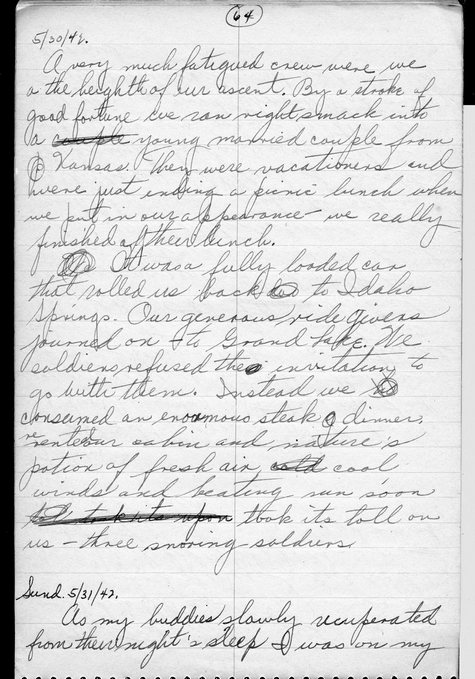 64
5/30/42.
A very much fatigued crew were we
a the heighth of our ascent. By a stroke of
good fortune we ran right smack into
a couple young married couple from
Kansas. They were vacationers and
were just ending a picnic lunch when
we put in our appearance - we really
finished off their lunch.
It was a fully loaded car
that rolled us back to Idaho
Springs. Our generous ride givers
journed on to Grand Lake. We
soldiers refused the invitation to
go with them. Instead we
consumed an enormous steak dinner,
rented our cabin and nature's
potion of fresh air, cold cool
winds and beating sun soon
took its upon took its toll on
us - three snoring soldiers.
Sund. 5/31/42.
As my buddies slowly recuperated
from their night's sleep I was on my